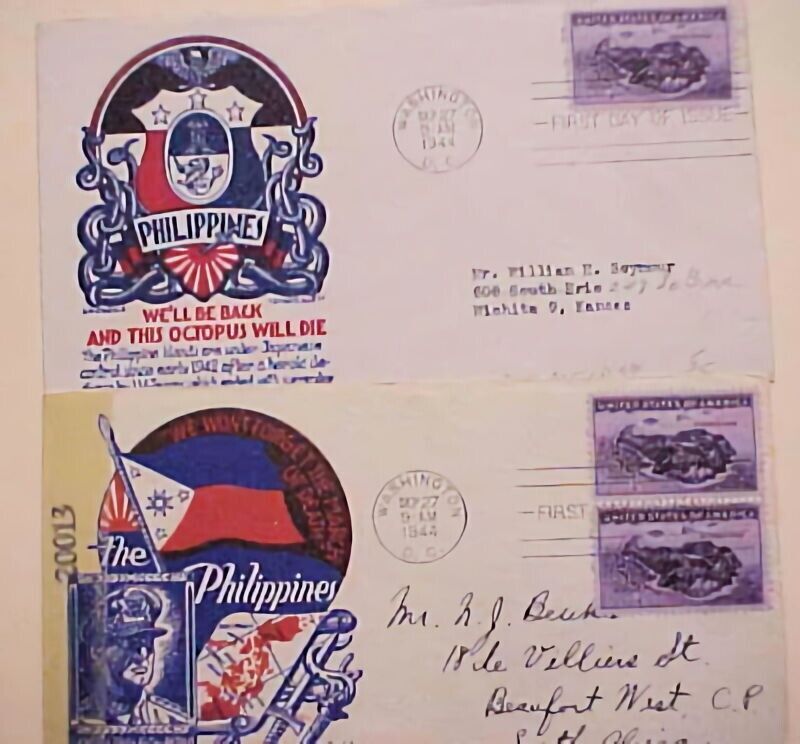 UNITED STATES OF AMERICA
WASHINGTON
SEP 27
9 AM
1944
D. C.
FIRST DAY OF ISSUE
PHILIPPINES
Mr. William E. Seymour
606 South Erie
Wichita 9, Kansas
WE'LL BE BACK
AND THIS OCTOPUS WILL DIE
The Philippine Islands are under Japanese
control since early 1942 after a heroic de-
5c
UNITED STATES OF AMERICA
WE WON'T FORGET
20013
WASHINGTON
SEP 27
9 AM
1944
D. C.
FIRST
UNITED STATES OF AMERICA
the Philippines
Mr. N. J.
18 de Villiers St.
Beaufort West C.P.
South Africa